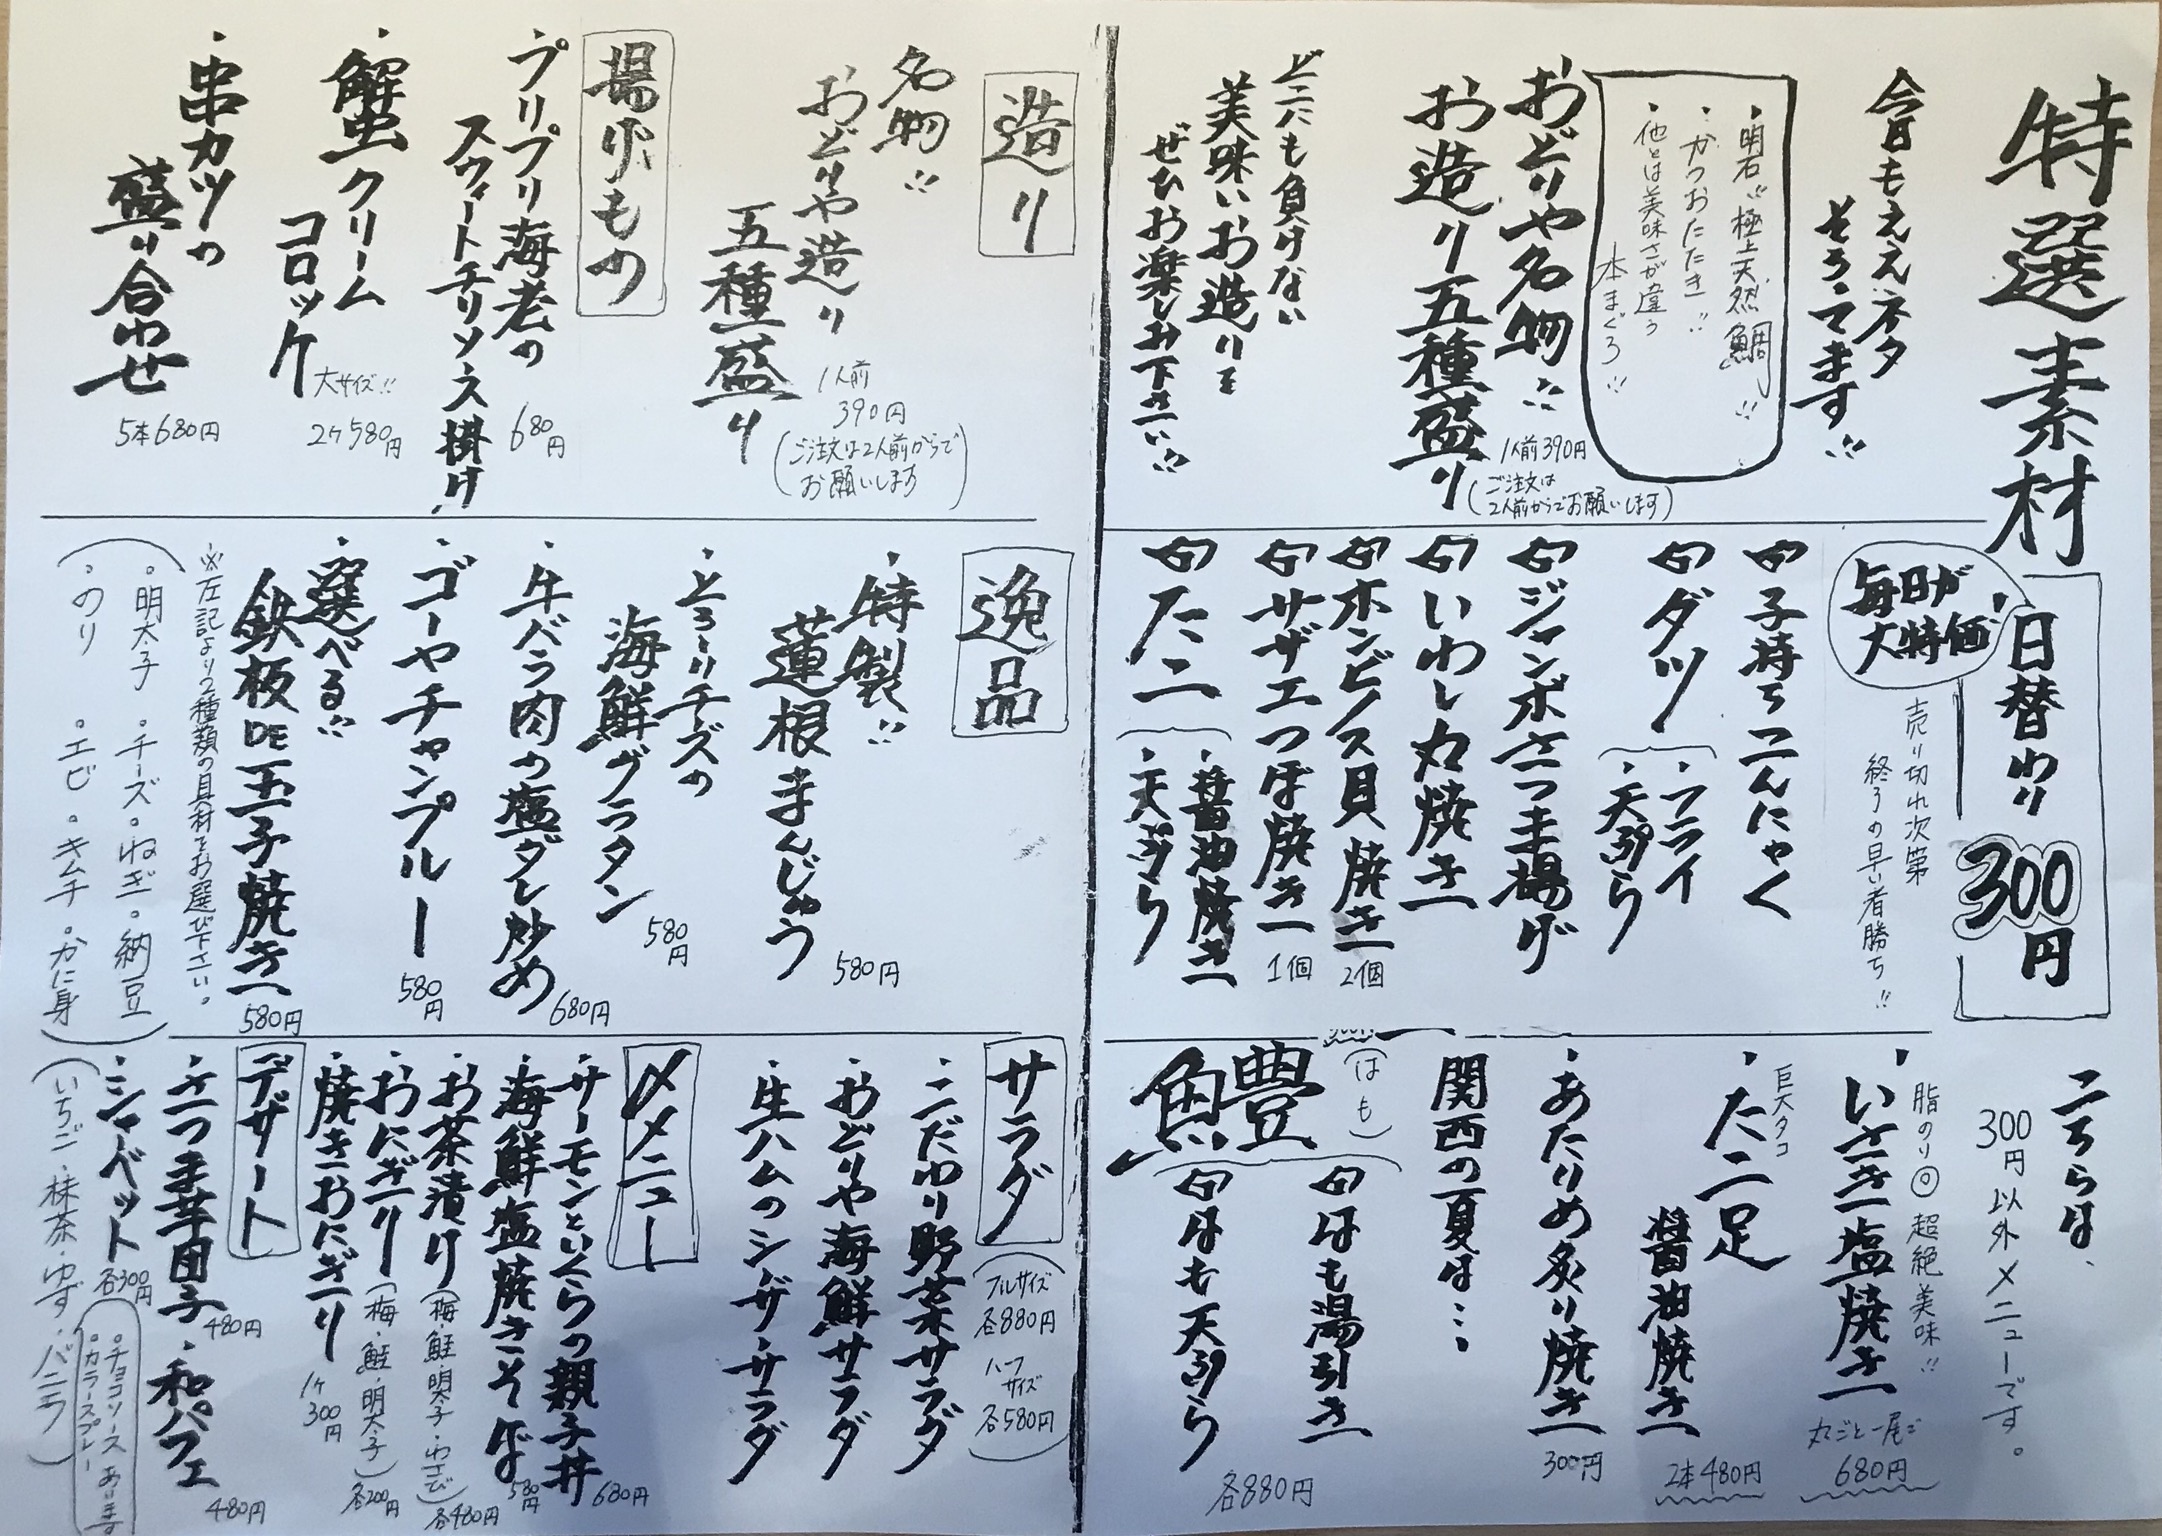 特選素材
今日もええネタ
そろってます!!
・明石!!極上天然鯛!!
・かつおたたき!!
・他とは美味さが違う
本まぐろ!!
おどりや名物!!
お造り五種盛り
1人前390円
(ご注文は
2人前からでお願いします)
どこにも負けない
美味いお造りを
ぜひお楽しみ下さい!!
日替わり300円
毎日が
大特価!
売り切れ次第
終了の早い者勝ち!!
子持ちこんにゃく
ダツ
・フライ
・天ぷら
ジャンボさつま揚げ
いわし丸焼き
ホンビノス貝焼き
2個
サザエつぼ焼き
1個
たこ
・醤油焼き
・天ぷら
こちらは、
300円以外メニューです。
脂のり◎超絶美味!!
・いさき塩焼き
丸ごと一尾で
680円
巨大タコ
・たこ足
醤油焼き
2本480円
・あたりめ炙り焼き
300円
関西の夏は…
鱧
(はも)
はも湯引き
はも天ぷら
各880円
造り
名物!!
おどりや造り
五種盛り
1人前
390円
(ご注文は2人前からで
お願いします)
揚げもの
・プリプリ海老の
スウィートチリソース掛け
680円
・蟹クリーム
コロッケ
大サイズ!!
2ケ580円
・串カツの
盛り合わせ
5本680円
逸品
・特製!!
蓮根まんじゅう
580円
・とろーりチーズの
海鮮グラタン
580円
・牛バラ肉の塩ダレ炒め
680円
・ゴーヤチャンプルー
580円
・選べる!!
鉄板DE玉子焼き
580円
※左記より2種類の具材をお選び下さい。
(。明太子 。チーズ。ねぎ。納豆
。のり 。エビ。キムチ。かに身)
サラダ
(フルサイズ
各880円
ハーフ
サイズ
各580円)
・こだわり野菜サラダ
・おどりや海鮮サラダ
・生ハムのシーザーサラダ
〆メニュー
・サーモンといくらの親子丼
680円
・海鮮塩焼きそば
580円
・お茶漬け(梅・鮭・明太子・わさび)
各480円
・おにぎり(梅・鮭・明太子)
各200円
・焼きおにぎり
1ケ
300円
デザート
・さつま芋団子
480円
・和パフェ
480円
・シャーベット
各300円
(いちご・抹茶・ゆず・バニラ)
。チョコソース
。カラースプレー
あります